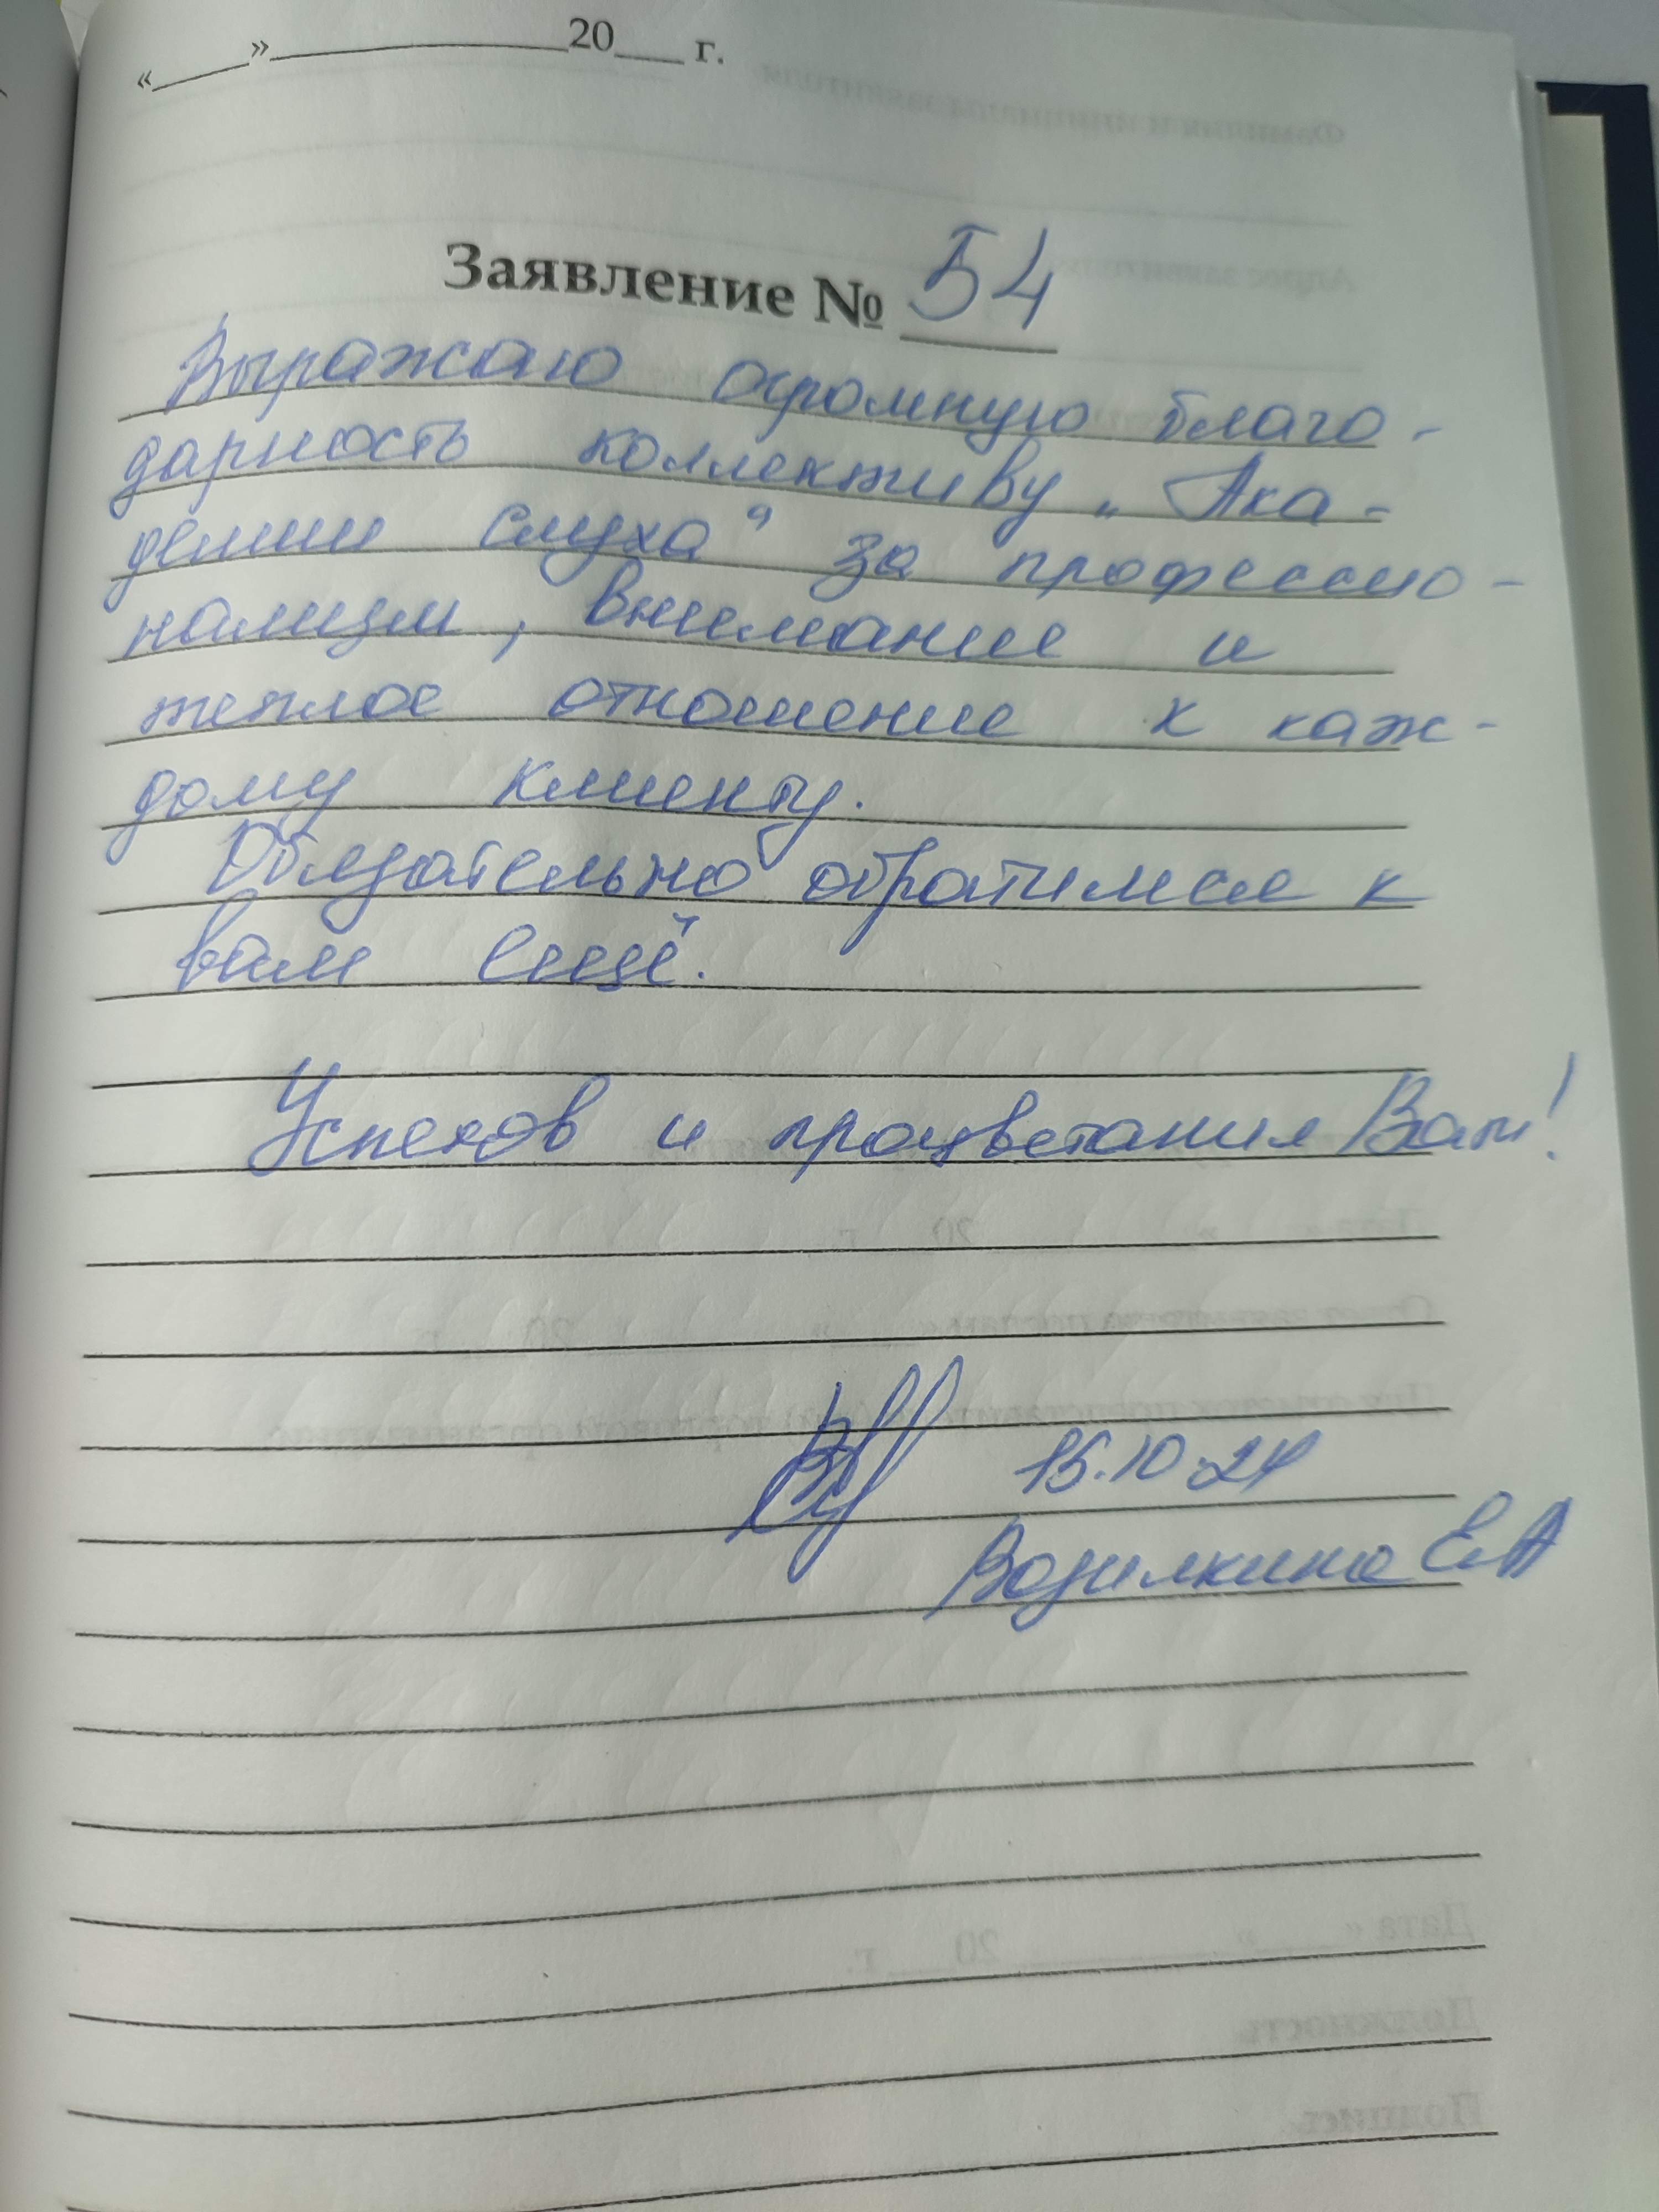 «____»____________20___ г.
Заявление № 54
Выражаю огромную благо-
дарность коллективу „Ака-
демии слуха“ за профессио-
нализм, внимание и
теплое отношение к каж-
дому клиенту.
Обязательно обратимся к
вам ещё.
Успехов и процветания Вам!
15.10.24
Возилкина Е.А